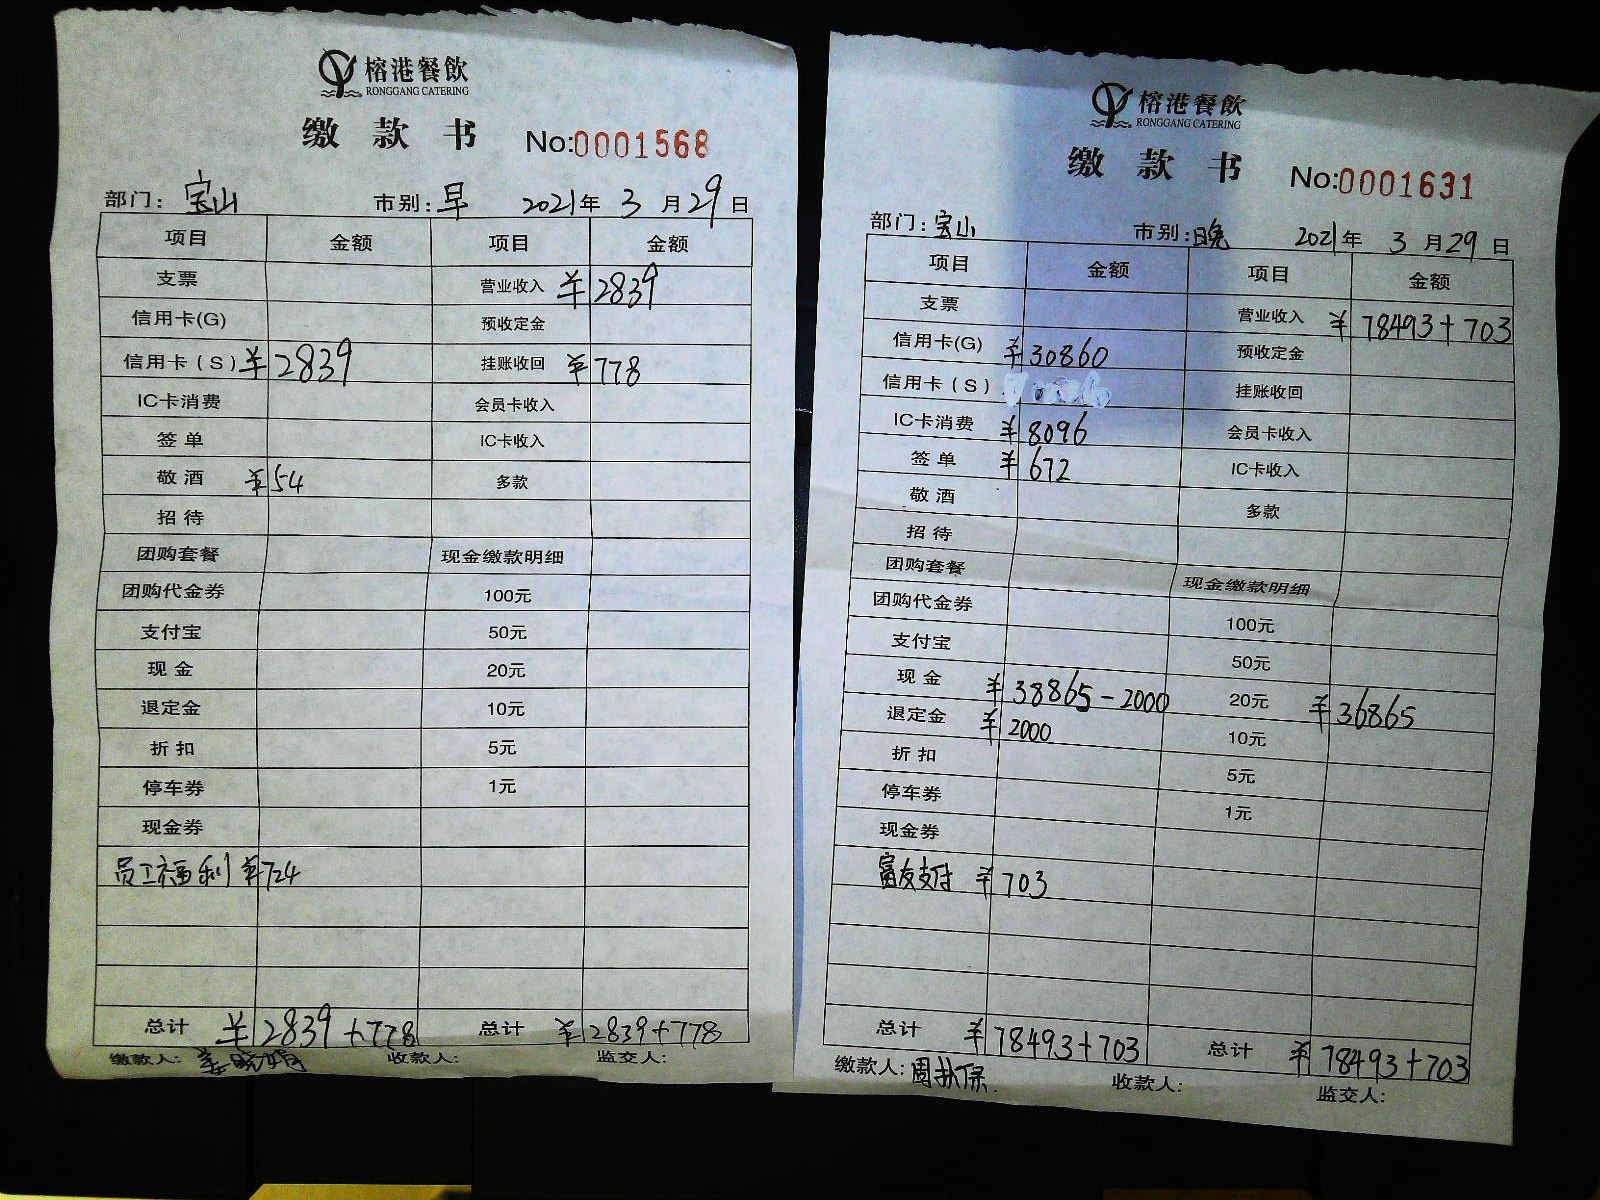 榕港餐飲
RONGGANG CATERING
缴款书 No:0001568
部门：宝山 市别：早 2021年 3月29日
项目 金额 项目 金额
支票 营业收入 ¥2839
信用卡(G) 预收定金
信用卡（S） ¥2839 挂账收回 ¥778
IC卡消费 会员卡收入
签单 IC卡收入
敬酒 ¥54 多款
招待
团购套餐 现金缴款明细
团购代金券 100元
支付宝 50元
现金 20元
退定金 10元
折扣 5元
停车券 1元
现金券
员工福利 ¥724
总计 ¥2839+778 总计 ¥2839+778
缴款人: 收款人: 监交人:
榕港餐飲
RONGGANG CATERING
缴款书 No:0001631
部门：宝山 市别：晚 2021年 3月29日
项目 金额 项目 金额
支票 营业收入 ¥78493+703
信用卡(G) ¥30860 预收定金
信用卡（S） 挂账收回
IC卡消费 ¥8096 会员卡收入
签单 ¥672 IC卡收入
敬酒 多款
招待
团购套餐 现金缴款明细
团购代金券 100元
支付宝 50元
现金 ¥38865-2000 20元 ¥36865
退定金 ¥2000 10元
折扣 5元
停车券 1元
现金券
富友支付 ¥703
总计 ¥78493+703 总计 ¥78493+703
缴款人: 收款人: 监交人: